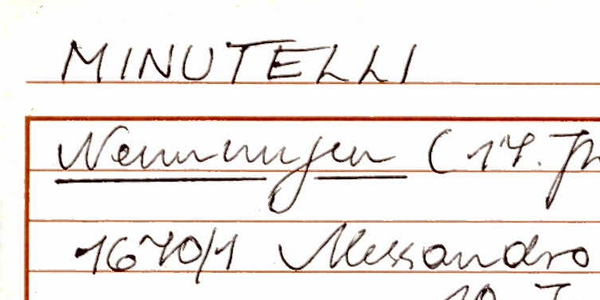 MINUTELLI
Nennungen (17. Jh
1670/1 Alessandro